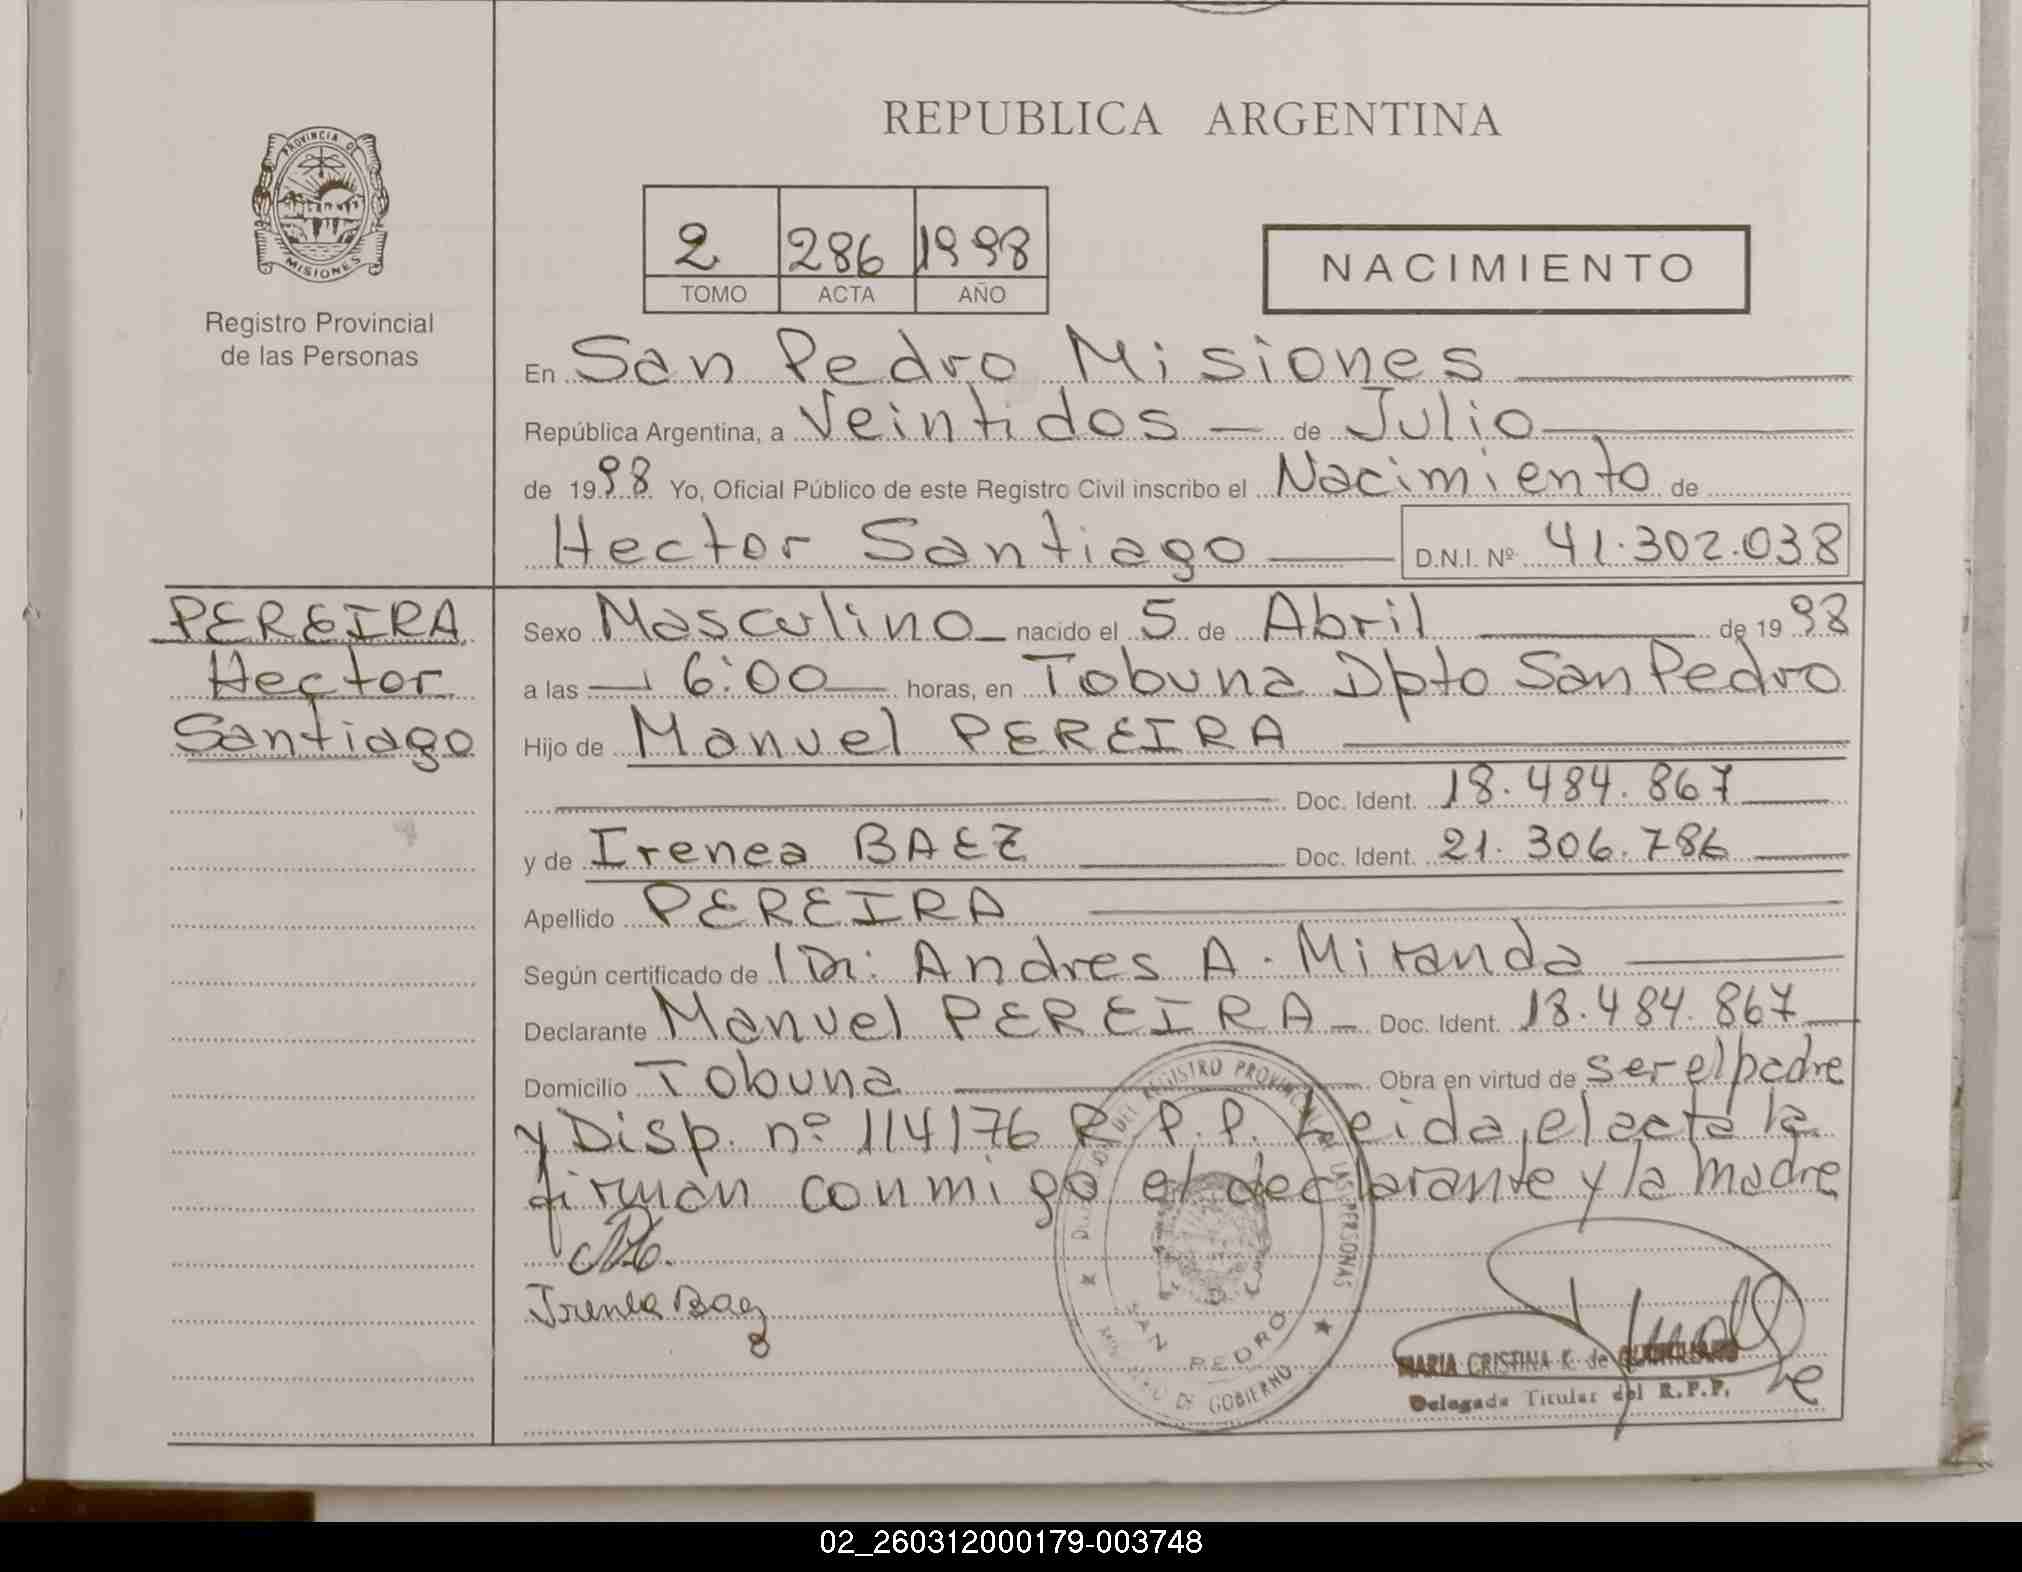 REPUBLICA ARGENTINA
PROVINCIA DE
MISIONES
Registro Provincial
de las Personas
2 286 1998
TOMO ACTA AÑO
NACIMIENTO
En San Pedro Misiones
República Argentina, a Veintidos de Julio
de 1998 Yo, Oficial Público de este Registro Civil inscribo el Nacimiento de
Hector Santiago D.N.I. Nº 41.302.038
PEREIRA
Hector
Santiago
Sexo Masculino nacido el 5 de Abril de 1998
a las 6:00 horas, en Tobuna Dpto San Pedro
Hijo de Manuel PEREIRA
Doc. Ident. 18.484.867
y de Irenea BAEZ Doc. Ident. 21.306.786
Apellido PEREIRA
Según certificado de Dr: Andres A. Miranda
Declarante Manuel PEREIRA Doc. Ident. 18.484.867
Domicilio Tobuna Obra en virtud de ser el padre
y Disp. nº 114/76 R.P.P. Leida el acta la
firman conmigo el declarante y la madre
Irenea Baez
DEL REGISTRO PROVINCIAL DE LAS PERSONAS
SAN PEDRO
DE GOBIERNO
MARIA CRISTINA K. de
Delegada Titular del R.P.P.
02_260312000179-003748